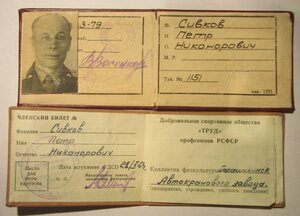 3-79
Ф. Сивков
И. Петр
О. Никонорович
М. Р.
Таб. № 1151
зак. 1291
ЧЛЕНСКИЙ БИЛЕТ №
Фамилия Сивков
Имя Петр
Отчество Никонорович
Место для фото-карточки
М. П.
Дата вступления в ДСО
Председатель совета коллектива физкультуры
Добровольное спортивное общество
«ТРУД»
профсоюзов РСФСР
Коллектив физкультуры
Автокранового завода
(предприятия, учреждения, учебного заведения)